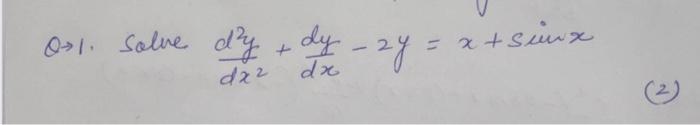 Q→1. Solve d²y/dx² + dy/dx - 2y = x + sinx
(2)